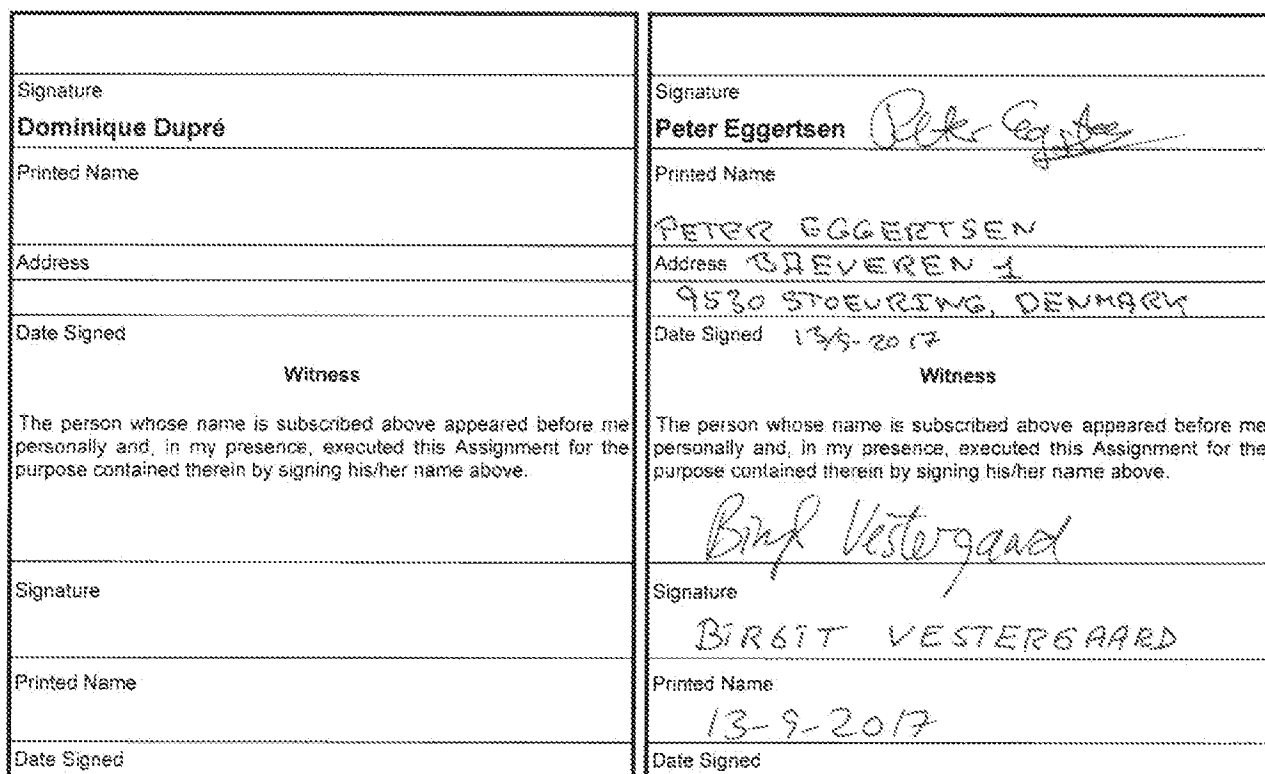 Signature
Dominique Dupré
Printed Name
Address
Date Signed
Witness
The person whose name is subscribed above appeared before me
personally and, in my presence, executed this Assignment for the
purpose contained therein by signing his/her name above.
Signature
Printed Name
Date Signed
Signature
Peter Eggertsen Peter
Printed Name
PETER EGGERTSEN
Address BAEVEREN 1
9530 STOEVRING, DENMARK
Date Signed 13/9-2017
Witness
The person whose name is subscribed above appeared before me
personally and, in my presence, executed this Assignment for the
purpose contained therein by signing his/her name above.
Vestergaard
Signature
BIRGIT VESTERGAARD
Printed Name
13-9-2017
Date Signed